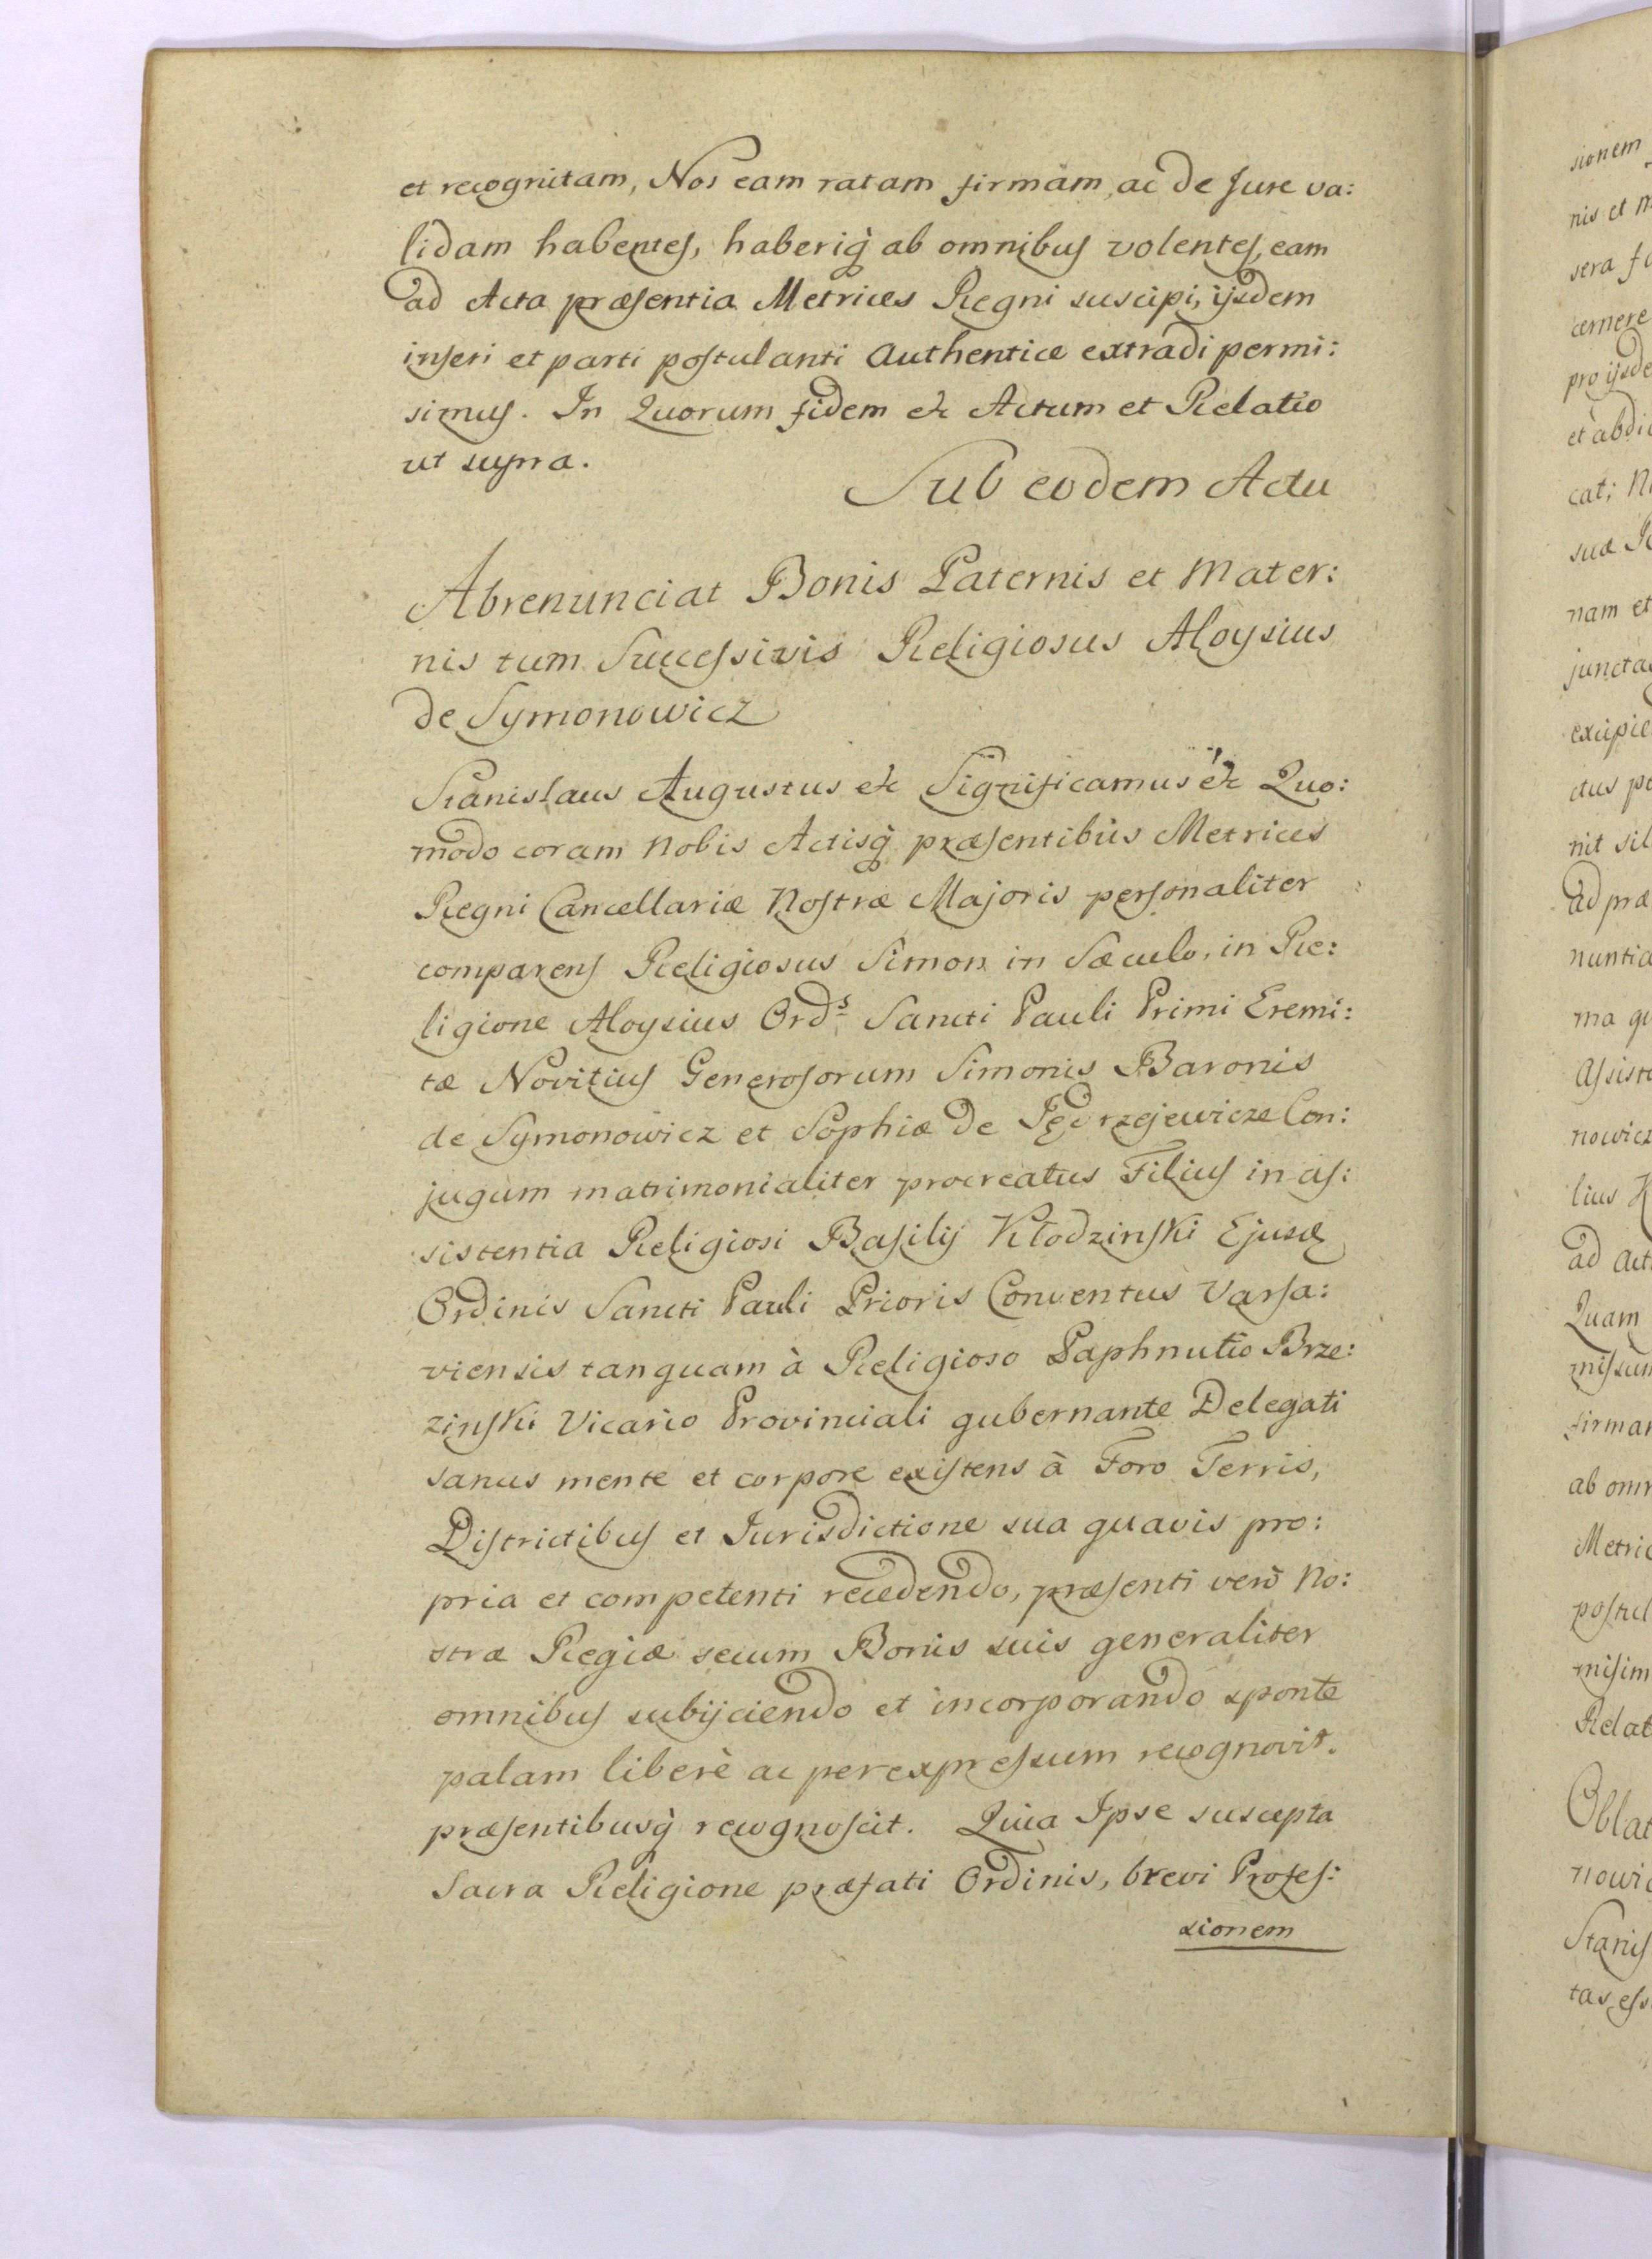 et recognitam, Nos eam ratam firmam, ac de Jure va:
lidam habentes, haberiq̃ ab omnibus volentes, eam
ad Acta præsentia Metrices Regni suscipi, ijsdem
inseri et parti postulanti Authentice extradi permi:
simus. In Quorum fidem etc Actum et Relatio
ut supra.
Sub eodem Actu
Abrenunciat Bonis Paternis et Mater:
nis tum Successivis Religiosus Aloysius
de Symonowicz
Stanislaus Augustus etc Significamus etc Quo:
modo coram Nobis Actisq̃ præsentibus Metrices
Regni Cancellariæ Nostræ Majoris personaliter
comparens Religiosus Simon in Sæculo, in Re:
ligione Aloysius Ordˢ Sancti Pauli Primi Eremi:
tæ Novitius Generosorum Simonis Baronis
de Symonowicz et Sophiæ de Jędrzejewicze Con:
jugum matrimonialiter procreatus Filius in as:
sistentia Religiosi Basilij Kłodzinski Ejusd
Ordinis Sancti Pauli Prioris Conventus Varsa:
viensis tanquam à Religioso Paphnutio Brze:
zinski Vicario Provinciali gubernante Delegati
sanus mente et corpore existens à Foro Terris,
Districtibus et Jurisdictione sua quavis pro:
pria et competenti recedendo, præsenti verò No:
stræ Regiæ secum Bonis suis generaliter
omnibus subijciendo et incorporando sponte
palam liberè ac per expressum recognovit.
præsentibusq̃ recognoscit. Quia Ipse suscepta
Sacra Religione præfati Ordinis, brevi Profes:
sionem
sionem
nis et m
sera fa
cernere
pro ijsde
et abdi
cat; N
suæ
nam et
juncta
excipie
ctus pe
nit sil
ad præ
nuntia
ma qu
Assiste
nowicz
lius K
ad Act
Quam
missum
firmam
ab omn
Metric
postul
misim
Relat
Oblat
nowic
Stanis
tas ess